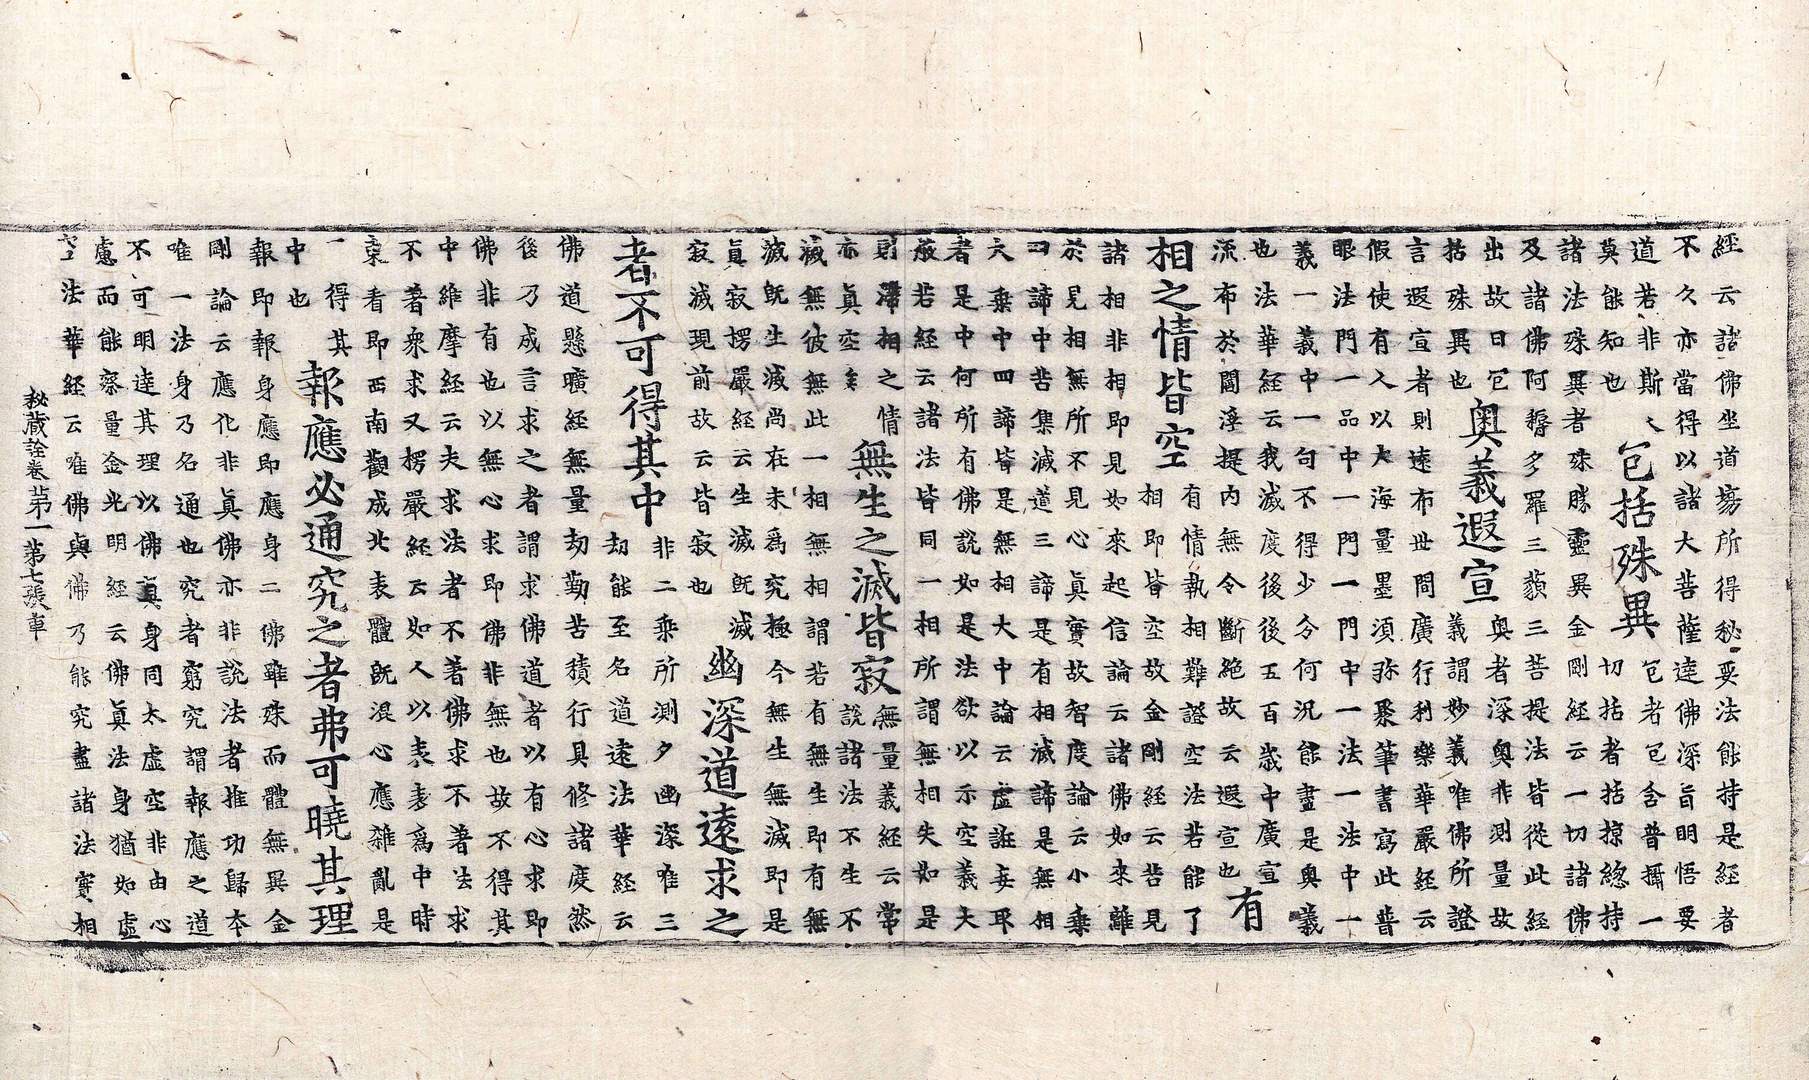 經云諸佛坐道場所得秘要法能持是經者
不久亦當得以諸大菩薩達佛深旨明悟要
道若非斯人
莫能知也
包括殊異
包者包含普攝一
切括者括掠揔持
諸法殊異者殊勝靈異金剛經云一切諸佛
及諸佛阿耨多羅三藐三菩提法皆從此經
出故曰包
括殊異也
奧義遐宣
奧者深奧非測量故
義謂妙義唯佛所證
言遐宣者則遠布世間廣行利樂華嚴經云
假使有人以大海量墨須弥聚筆書寫此普
眼法門一品中一門一門中一法一法中一
義一義中一句不得少分何況能盡是奧義
也法華經云我滅度後後五百歲中廣宣
流布於閻浮提內無令斷絕故云遐宣也
有
相之情皆空
有情執相難證空法若能了
相即皆空故金剛經云若見
諸相非相即見如來起信論云諸佛如來離
於見相無所不見心真實故智度論云小乗
四諦中苦集滅道三諦是有相滅諦是無相
大乗中四諦皆是無相大中論云虛誑妄耶
者是中何所有佛說如是法欲以示空義夫
般若經云諸法皆同一相所謂無相失如是
則滯相之情
亦真空矣
無生之滅皆寂
無量義經云常
說諸法不生不
滅無彼無此一相無相謂若有無生即有無
滅旣生滅尚在未為究極今無生無滅即是
真寂楞嚴經云生滅旣滅
寂滅現前故云皆寂也
幽深道遠求之
者不可得其中
非二乗所測夕幽深唯三
劫能至名道遠法華經云
佛道懸曠經無量劫勤苦積行具修諸度然
後乃成言求之者謂求佛道者以有心求即
佛非有也以無心求即佛非無也故不得其
中維摩經云夫求法者不著佛求不著法求
不著衆求又楞嚴經云如人以表表為中時
東看即西南觀成北表體旣混心應雜亂是
一得其
中也
報應必通究之者弗可曉其理
報即報身應即應身二佛雖殊而體無異金
剛論云應化非真佛亦非說法者推功歸本
唯一法身乃名通也究者窮究謂報應之道
不可明達其理以佛真身同太虛空非由心
慮而能察量金光明經云佛真法身猶如虛
空法華經云唯佛與佛乃能究盡諸法實相
秘藏詮卷第一第七張車